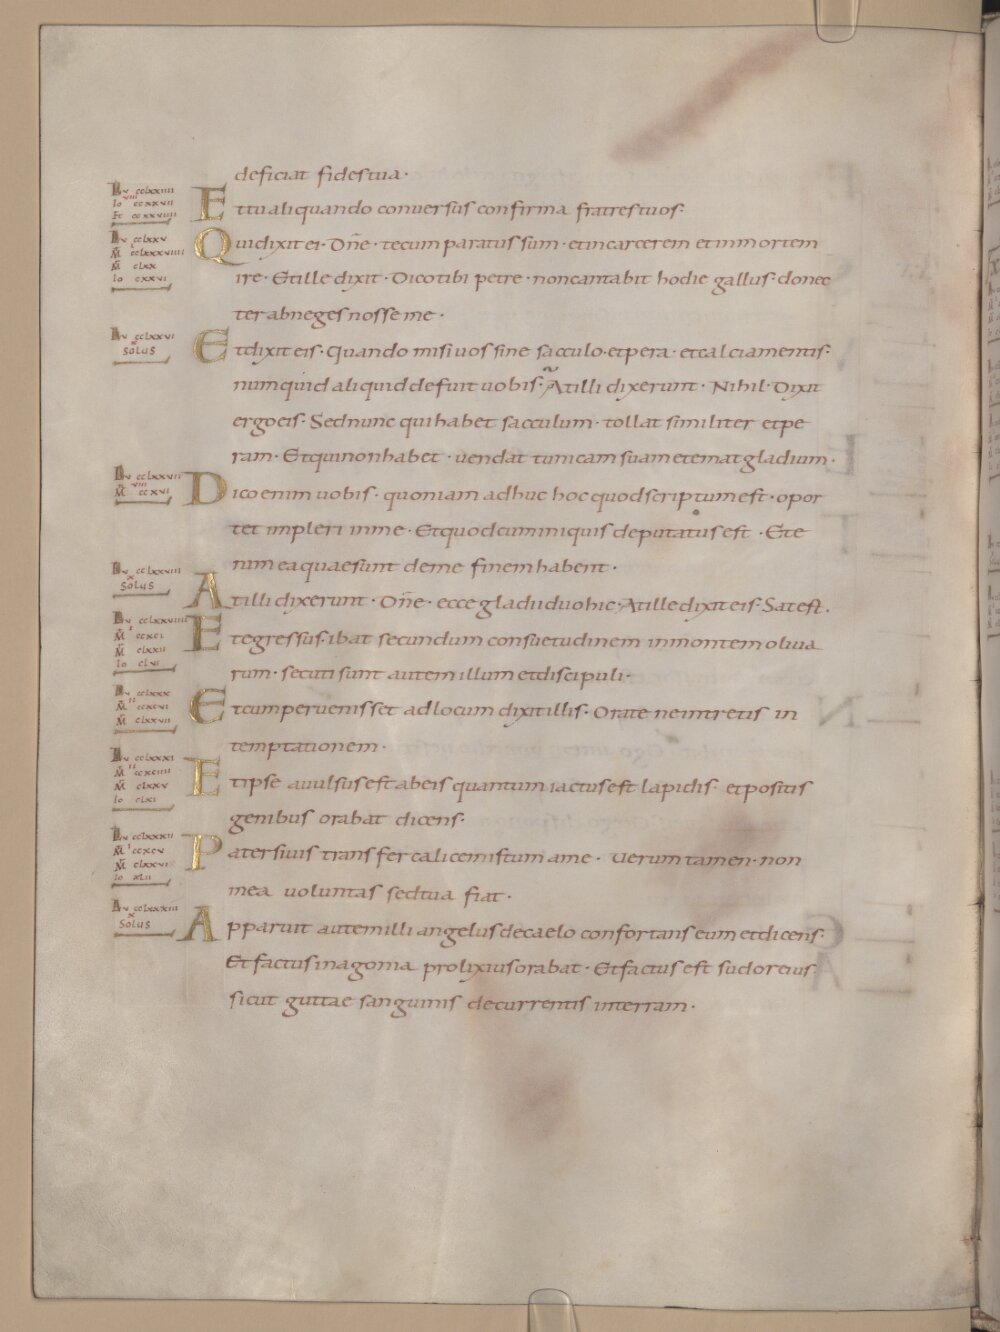 deficiat fidestua·
Ettualiquando conuersus confirma fratrestuos·
Quidixitei· Dn̄e· tecum paratussum· etincarcerem etinmortem
ire· Etille dixit· Dicotibi petre· noncantabit hodie gallus· donec
ter abneges nosse me·
Etdixiteis· Quando misi uos sine sacculo· etpera· etcalciamentis·
numquid aliquid defuit uobis· Atilli dixerunt· Nihil· Dixit
ergoeis· Sednunc quihabet sacculum· tollat similiter etpe
ram· Etquinonhabet· uendat tunicam suam etematgladium·
Dicoenim uobis· quoniam adhuc hoc quodscriptumest· opor
tet impleri inme· Etquodcuminiquis deputatus est· Ete
nim eaquaesunt deme finem habent·
Atilli dixerunt· Dn̄e· ecce gladii duo hic· Atille dixit eis· Satest·
Etegressus· ibat secundum consuetudinem inmontem oliua
rum· secuti sunt autem illum etdiscipuli·
Etcumperuenisset adlocum dixitillis· Orate neintretis in
temptationem·
Etipse auulsus est abeis quantum iactus est lapidis· etpositis
genibus orabat dicens·
Patersiuis transfer calicemistum ame· Uerum tamen· non
mea uoluntas sedtua fiat·
Apparuit autemilli angelus decaelo confortans eum etdicens·
Etfactusinagonia prolixiusorabat· Etfactus est sudoreius
sicut guttae sanguinis decurrentis interram·
Lu cclxxv
Lu cclxxvi
solus
Lu cclxxvii
Lu cclxxviii
solus
Lu cclxxx
Lu cclxxxi
Lu cclxxxii
Lu cclxxxiii
solus